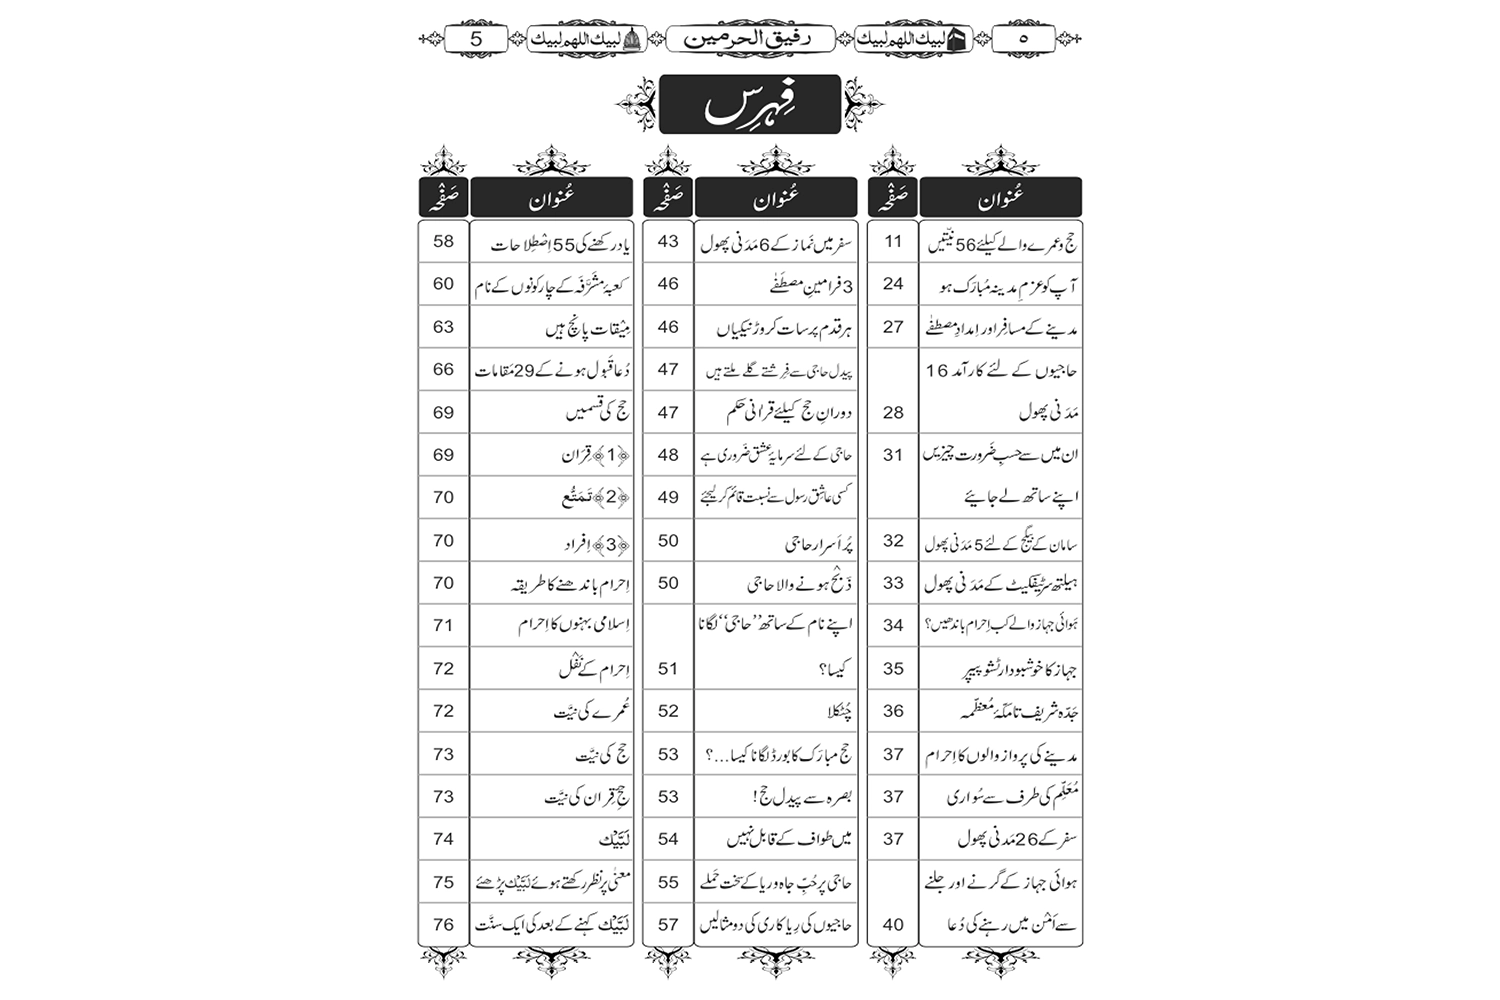 ٥ لبیك اللهم لبیك رفیق الحرمین لبیك اللهم لبیك 5
فِہرِس
عُنوان صَفْحہ
حج و عمرے والے کیلئے 56 نیّتیں 11
آپ کو عزمِ مدینہ مُبارَک ہو 24
مدینے کے مسافر اور اِمدادِ مصطفٰے 27
حاجیوں کے لئے کار آمد 16
مَدَنی پھول 28
ان میں سے حسبِ ضَرورت چیزیں 31
اپنے ساتھ لے جایئے
سامان کے بیگیج کے لئے 5 مَدَنی پھول 32
ہیلتھ سرٹیفکیٹ کے مَدَنی پھول 33
ہَوائی جہاز والے کب اِحرام باندھیں؟ 34
جہاز کا خوشبودار ٹشو پیپر 35
جَدّہ شریف تا مکّۂ مُعظّمہ 36
مدینے کی پرواز والوں کا اِحرام 37
مُعَلِّم کی طرف سے سُواری 37
سفر کے 26 مَدَنی پھول 37
ہوائی جہاز کے گرنے اور جلنے
سے اَمْن میں رہنے کی دُعا 40
عُنوان صَفْحہ
سفر میں نَماز کے 6 مَدَنی پھول 43
3 فرامینِ مصطَفٰے 46
ہر قدم پر سات کروڑ نیکیاں 46
پیدل حاجی سے فِرِشتے گلے ملتے ہیں 47
دورانِ حج کیلئے قراٰنی حکم 47
حاجی کے لئے سرمایۂ عشق ضَروری ہے 48
کسی عاشِقِ رسول سے نسبت قائم کر لیجئے 49
پُر اَسرار حاجی 50
ذَبْح ہونے والا حاجی 50
اپنے نام کے ساتھ ’’حاجی‘‘ لگانا
کیسا؟ 51
چُٹکلا 52
حج مبارَک کا بورڈ لگانا کیسا...؟ 53
بصرہ سے پیدل حج! 53
میں طواف کے قابل نہیں 54
حاجی پر حُبِّ جاہ و ریا کے سخت حَملے 55
حاجیوں کی رِیا کاری کی دو مثالیں 57
عُنوان صَفْحہ
یاد رکھنے کی 55 اِصْطِلاحات 58
کعبۂ مشَرَّفہ کے چار کونوں کے نام 60
مِیقات پانچ ہیں 63
دُعا قَبول ہونے کے 29 مَقامات 66
حج کی قسمیں 69
﴿1﴾ قِران 69
﴿2﴾ تَمَتُّع 70
﴿3﴾ اِفراد 70
اِحرام باندھنے کا طریقہ 70
اِسلامی بہنوں کا اِحرام 71
اِحرام کے نَفْل 72
عُمرے کی نیَّت 72
حج کی نیَّت 73
حجِ قِران کی نیَّت 73
لَبَّیْك 74
معنٰی پر نظر رکھتے ہوئے لَبَّیْك پڑھئے 75
لَبَّیْك کہنے کے بعد کی ایک سنَّت 76